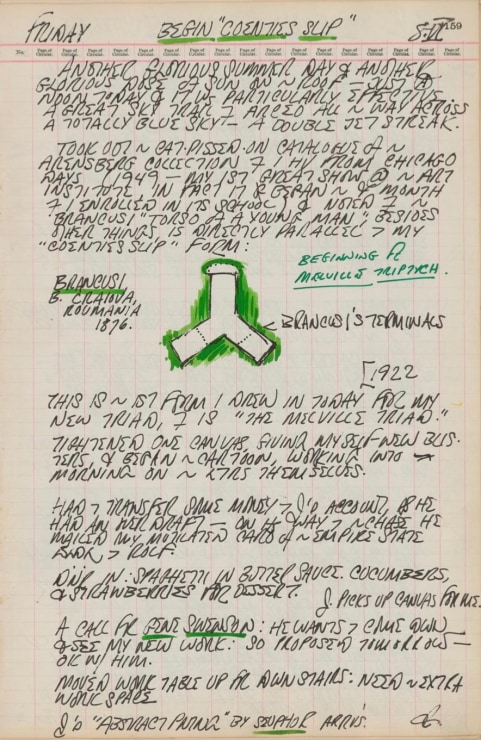 FRIDAY BEGIN "COENTIES SLIP" 159
No. Page of Circular. Page of Circular. Page of Circular. Page of Circular. Page of Circular. Page of Circular. Page of Circular. Page of Circular. Page of Circular. Page of Circular. Page of Circular. Page of Circular.
ANOTHER GLORIOUS SUMMER DAY & ANOTHER
GLORIOUS DOSE OF SUN ON ~ ROOF — JUST @
NOON TODAY & PARTICULARLY EFFECTIVE
A GREAT SKY TRAIL ARCED ALL ~ WAY ACROSS
A TOTALLY BLUE SKY — A DOUBLE JET STREAK.
TOOK OUT ~ CAT-PISSED-ON CATALOGUE OF ~
ARENSBERG COLLECTION I HV FROM CHICAGO
DAYS 1949 — MY 1ST GREAT SHOW @ ~ ART
INSTITUTE, IN FACT IT BEGAN ~ MONTH
I ENROLLED IN ITS SCHOOL, & NOTED
BRANCUSI "TORSO OF A YOUNG MAN" BESIDES
OTHER THINGS IS DIRECTLY PARALLEL > MY
"COENTIES SLIP" FORM:
BEGINNING FR
MELVILLE TRIPTYCH.
BRANCUSI
B. CRAIOVA,
ROUMANIA
1876.
BRANCUSI'S TERMINALS
[1922
THIS IS ~ 1ST FORM I DREW IN TODAY FOR MY
NEW TRIAD, IS "THE MELVILLE TRIAD."
TIGHTENED ONE CANVAS, GIVING MYSELF NEW BLIS-
TERS & BEGAN ~ CARTOON, WORKING INTO ~
MORNING ON ~ LTRS THEMSELVES.
HAD > TRANSFER SOME MONEY > J'S ACCOUNT, AS HE
HAD AN OVERDRAFT — ON HS WAY > ~ CHASE HE
MAILED MY MUTILATED CARD OF ~ EMPIRE STATE
BLDG > ROLF.
DINR IN: SPAGHETTI IN BUTTER SAUCE. CUCUMBERS,
& STRAWBERRIES FOR DESSERT.
J. PICKS UP CANVAS FOR ME.
A CALL FR GENE SWENSON: HE WANTS > COME DOWN
& SEE MY NEW WORK: SO PROPOSED TOMORROW —
OK W/ HIM.
MOVED WORK TABLE UP FR DOWNSTAIRS: NEED ~ EXTRA
WORK SPACE
J'S "ABSTRACT PNTNG" BY SEUPHOR ARRVS.